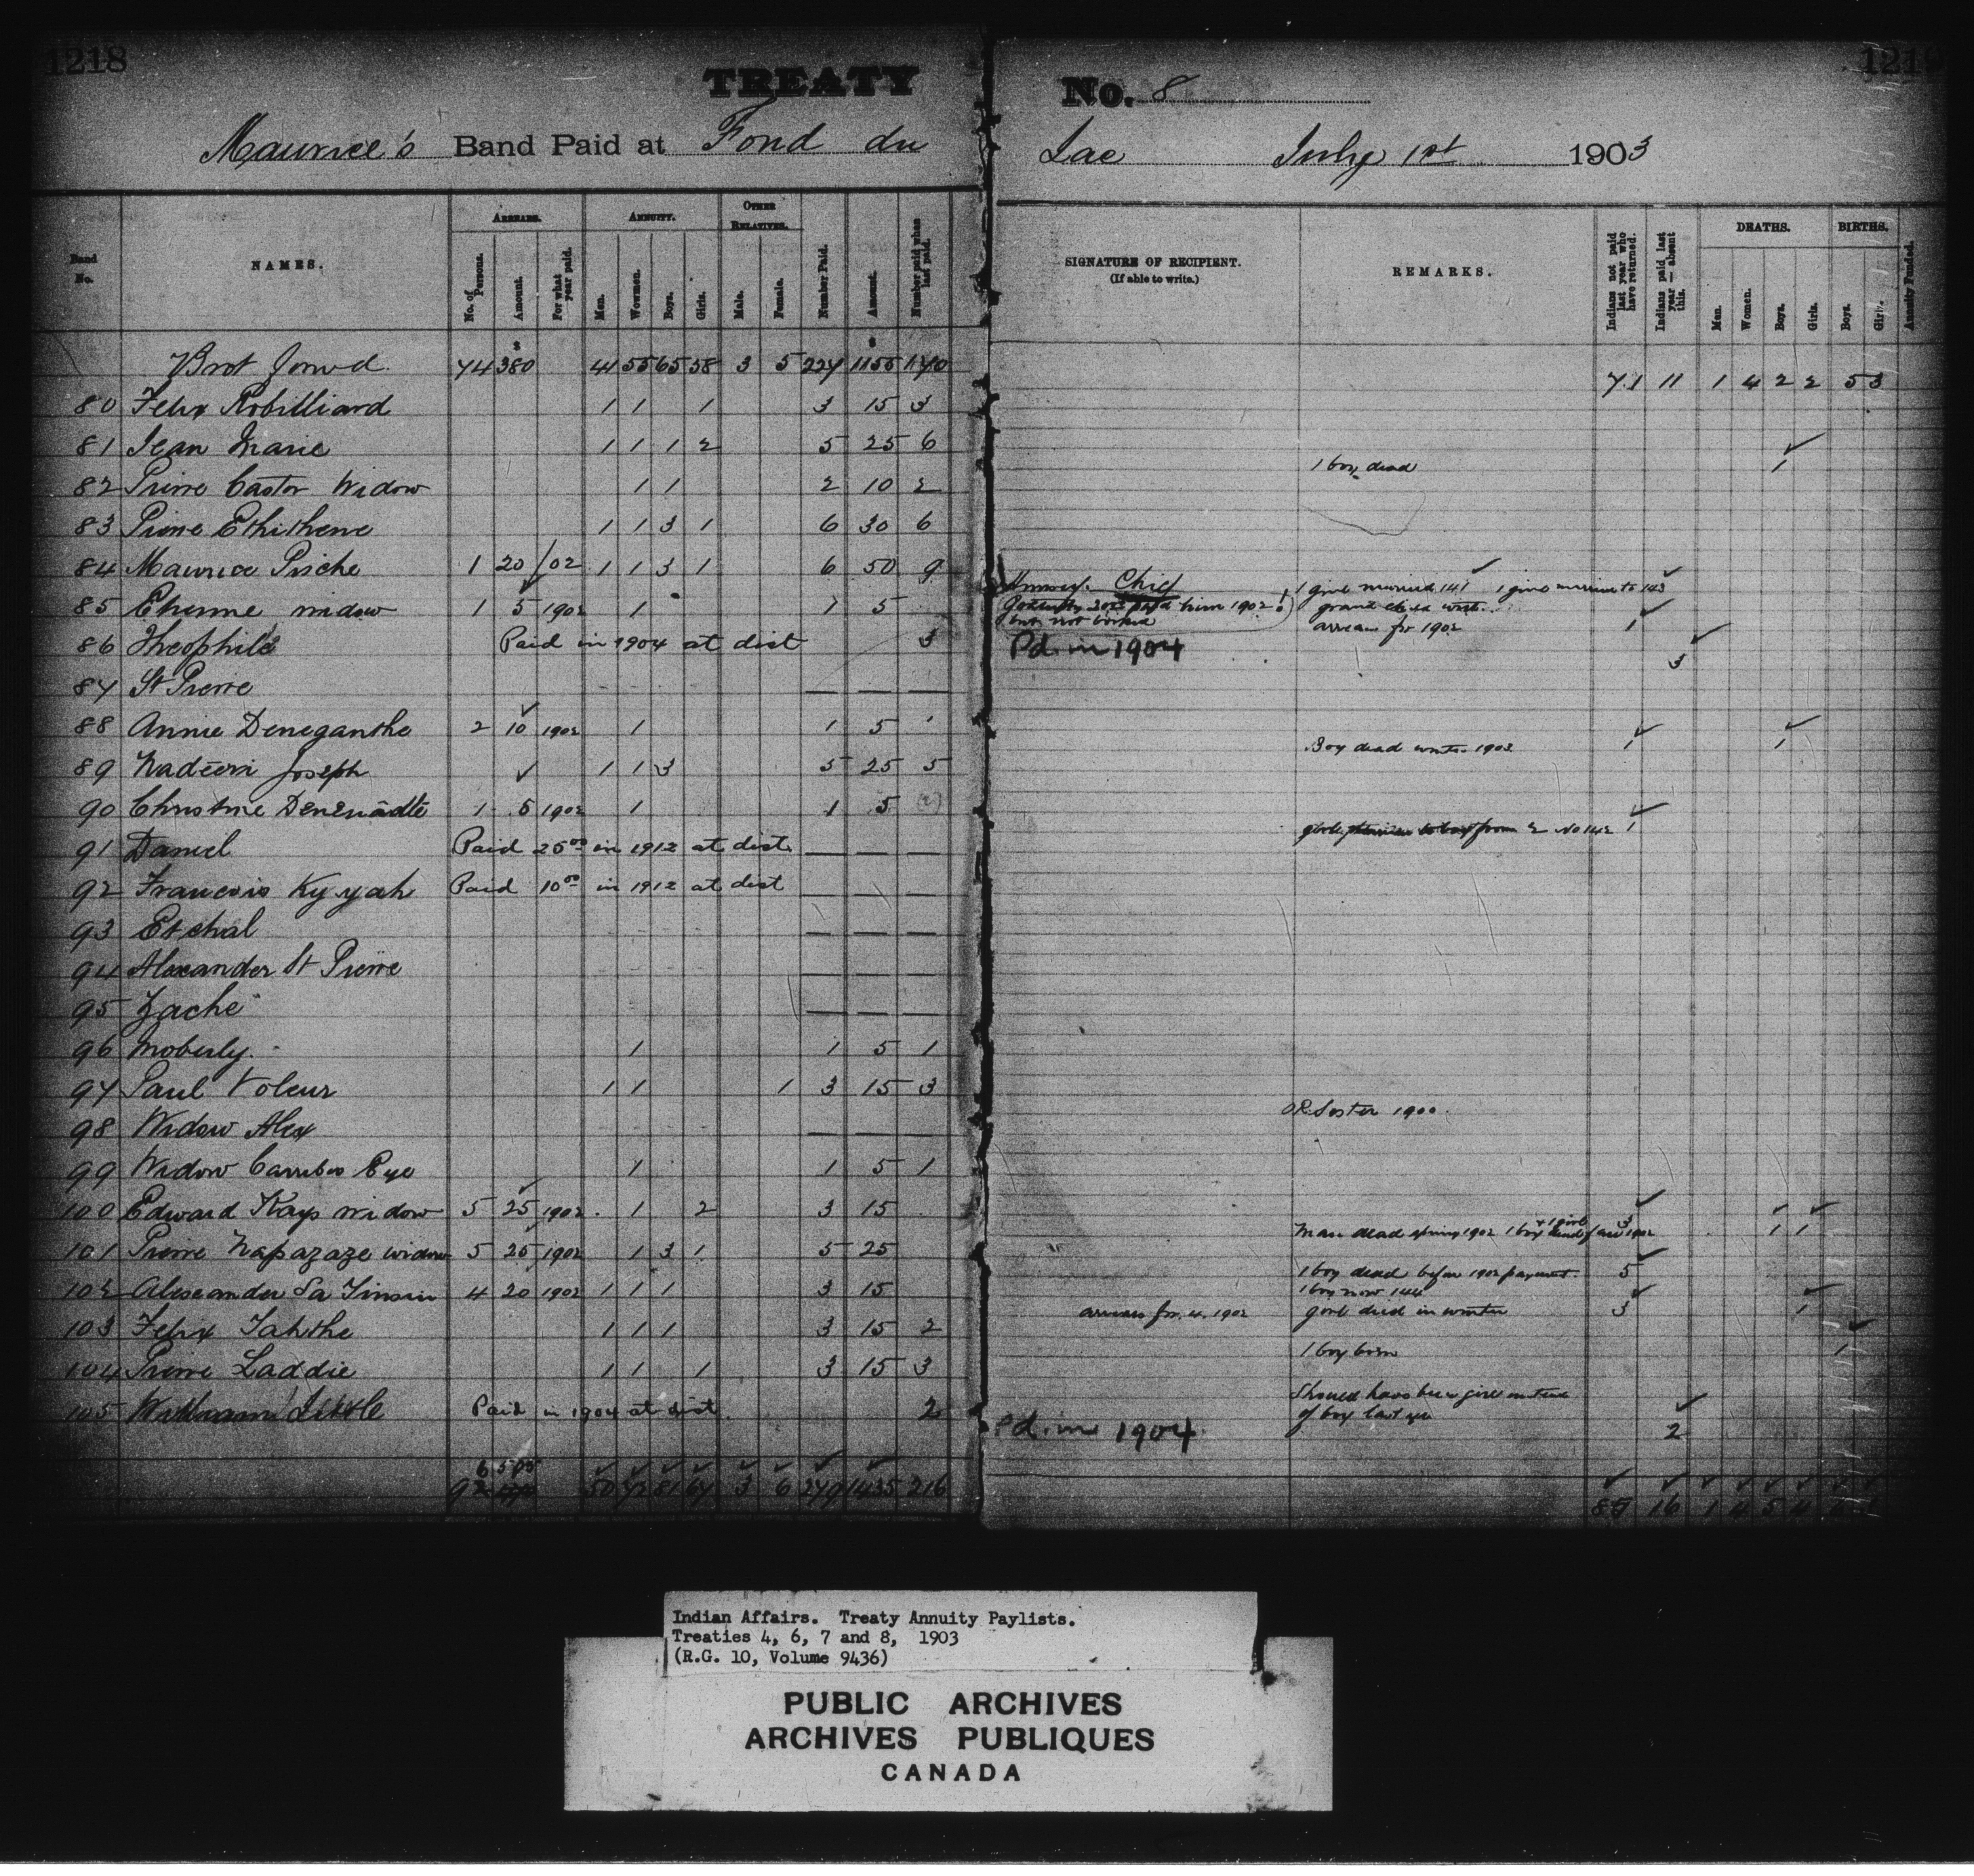 1218
TREATY No. 8
Maurice's Band Paid at Fond du Lac July 1st 1903
Band No. NAMES. ARREARS. ANNUITY. OTHER RELATIVES. Number Paid. Amount. Number paid when last paid. SIGNATURE OF RECIPIENT. (If able to write.) REMARKS. Indians not paid last year who have returned. Indians paid last year — absent this. DEATHS. BIRTHS. Annuity Funded.
No. of Persons. Amount. For what year paid. Men. Women. Boys. Girls. Male. Female. Men. Women. Boys. Girls. Boys. Girls.
Brot Forwd. 74 $380 41 55 65 58 3 5 227 $1155 71 11 1 4 2 2 5 3
80 Felix Robilliard 1 1 1 3 15 3
81 Jean Marie 1 1 1 2 5 25 6 1 boy dead 1
82 Pierre Castor Widow 1 1 2 10 2
83 Pierre Ethithene 1 1 3 1 6 30 6
84 Maurice Piche 1 20 /02 1 1 3 1 6 50 9 Chief 1 girl married 141 1 girl married to 143
85 Etienne widow 1 5 1902 1 1 5 paid him 1902 but not booked arrears for 1902 1
86 Theophile Paid in 1904 at dist 3 Pd. in 1904 3
87 St Pierre — — —
88 Annie Deneganthe 2 10 1902 1 1 5 1 Boy dead winter 1902 1 1
89 Nadeeri Joseph 1 1 3 5 25 5
90 Christine Denenadle 1 5 1902 1 1 5 (2) No 142 1
91 Daniel Paid 25.00 in 1912 at dist. — — —
92 Francois Kyyah Paid 10.00 in 1912 at dist — — —
93 Etchal — — —
94 Alexander St Pierre — — —
95 Zache — — —
96 Moberly. 1 1 5 1
97 Paul Voleur 1 1 1 3 15 3 Sister 1900.
98 Widow Alex — — —
99 Widow Carribos Eye 1 1 5 1
100 Edward Kays widow 5 25 1902 1 2 3 15 Man dead spring 1902 1 boy + 1 girl dead 1902 3 1 1
101 Pierre Napazaze widow 5 25 1902 1 3 1 5 25 1 boy dead before 1902 payment. 5
102 Alexander La Tinsin 4 20 1902 1 1 1 3 15 arrears for 4. 1902 1 boy now 144 girl died in winter 3 1
103 Felix Tahthe 1 1 1 3 15 2 1 boy born 1
104 Pierre Laddie 1 1 1 3 15 3 Should have been girl instead of boy last year
105 William Little Paid in 1904 at dist. 2 Pd. in 1904 2
6 505
50 72 81 67 3 6 279 1435 216 16 1 4 5 4
Indian Affairs. Treaty Annuity Paylists.
Treaties 4, 6, 7 and 8, 1903
(R.G. 10, Volume 9436)
PUBLIC ARCHIVES
ARCHIVES PUBLIQUES
CANADA